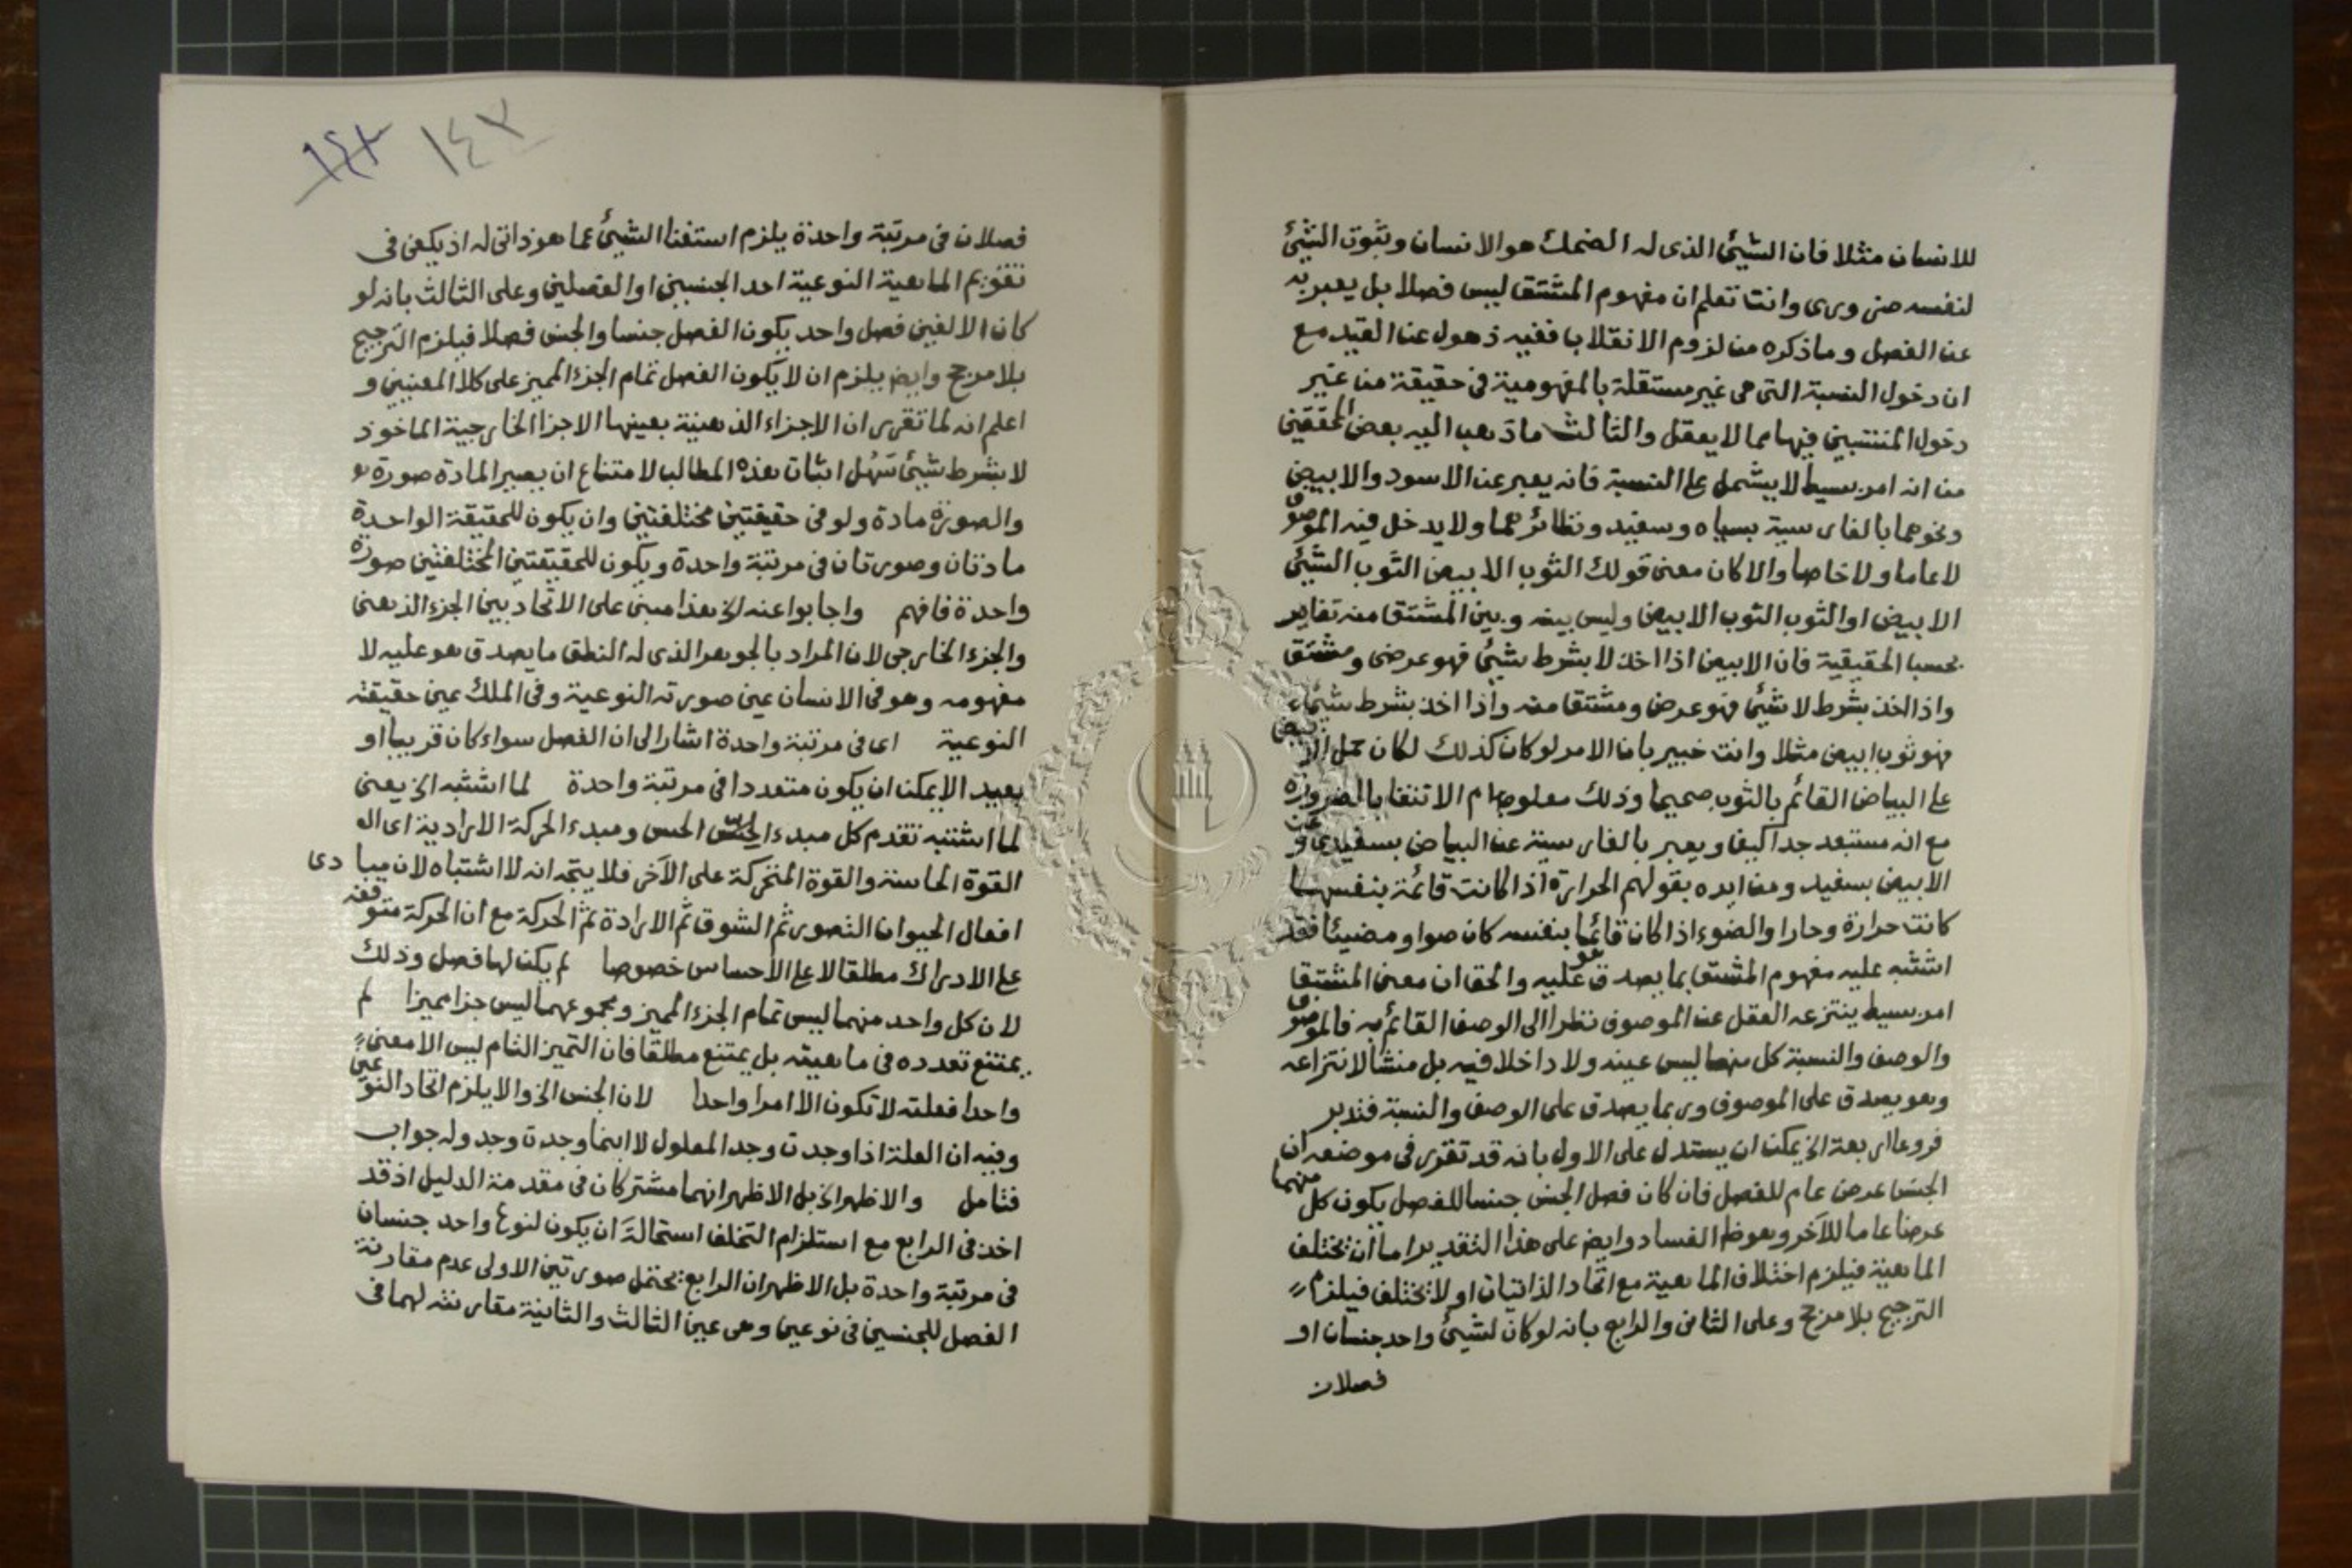 للانسان مثلا فان الشيئ الذى له الضحك هو الانسان وثبوت الشيئ
لنفسه ضرورى وانت تعلم ان مفهوم المشتق ليس فصلا بل يعبر به
عن الفصل وما ذكره من لزوم الانقلاب ففيه ذهول عن القيد مع
ان دخول النسبة التى هى غير مستقلة بالمفهومية فى حقيقة من غير
دخول المنتسبين فيها مما لا يعقل والثالث ما ذهب اليه بعض المحققين
من انه امر بسيط لا يشمل على النسبة فانه يعبر عن الاسود والابيض
ونحوهما بالفارسية بسياه وسفيد ونظائرهما ولا يدخل فيه الموصوف
لا عاما ولا خاصا والا كان معنى قولك الثوب الابيض الثوب الشيئ
الابيض او الثوب الثوب الابيض وليس بينه وبين المشتق منه تغاير
بحسب الحقيقية فان الابيض اذا اخذ لا بشرط شيئ فهو عرضى ومشتق
واذا اخذ بشرط لا شيئ فهو عرض ومشتق منه واذا اخذ بشرط شيئ
فهو ثوب ابيض مثلا وانت خبير بان الامر لو كان كذلك لكان حمل الابيض
على البياض القائم بالثوب صحيحا وذلك معلوم الانتفا بالضرورة
مع انه مستبعد جدا كيف ويعبر بالفارسية عن البياض بسفيدى وعن
الابيض بسفيد ومن ايده بقولهم الحرارة اذا كانت قائمة بنفسها
كانت حرارة وحارا والضوء اذا كان قائما بنفسه كان ضوا ومضيئا فقد
اشتبه عليه مفهوم المشتق بما يصدق هو عليه والحق ان معنى المشتق
امر بسيط ينتزعه العقل عن الموصوف نظرا الى الوصف القائم به فالموصوف
والوصف والنسبة كل منها ليس عينه ولا داخلا فيه بل منشا لانتزاعه
وهو يصدق على الموصوف وربما يصدق على الوصف والنسبة فتدبر
فروعا اربعة الخ يمكن ان يستدل على الاول بانه قد تقرر فى موضعه ان
الجنس عرض عام للفصل فان كان فصل الجنس جنسا للفصل يكون كل منهما
عرضا عاما للآخر وهو ظ الفساد وايض على هذا التقدير اما ان يختلف
الماهية فيلزم اختلاف الماهية مع اتحاد الذاتيات او لا يختلف فيلزم
الترجيح بلا مرجح وعلى الثانى والرابع بانه لو كان لشيئ واحد جنسان او
فصلان
١٤٣ ١٤٢
فصلان فى مرتبة واحدة يلزم استغنا الشيئ عما هو ذاتى له اذ يكفى فى
تقويم الماهية النوعية احد الجنسين او الفصلين وعلى الثالث بانه لو
كان الالفين فصل واحد يكون الفصل جنسا والجنس فصلا فيلزم الترجيح
بلا مرجح وايض يلزم ان لا يكون الفصل تمام الجزء المميز على كلا المعنيين و
اعلم انه لما تقرر ان الاجزاء الذهنية بعينها الاجزا الخارجية الماخوذ
لا بشرط شيئ سهل اثبات هذه المطالب لامتناع ان يصير المادة صورة
والصورة مادة ولو فى حقيقتين مختلفتين وان يكون للحقيقة الواحدة
مادتان وصورتان فى مرتبة واحدة ويكون للحقيقتين المختلفتين صورة
واحدة فافهم واجابوا عنه الخ هذا مبنى على الاتحاد بين الجزء الذهنى
والجزء الخارجى لان المراد بالجوهر الذى له النطق ما يصدق هو عليه لا
مفهومه وهو فى الانسان عين صورته النوعية وفى الملك عين حقيقته
النوعية اى فى مرتبة واحدة اشار الى ان الفصل سواء كان قريبا او
بعيد الا يمكن ان يكون متعددا فى مرتبة واحدة لما اشتبه الخ يعنى
لما اشتبه تقدم كل مبدء الحس ومبدء الحركة الارادية اى
القوة الحاسة والقوة المتحركة على الآخر فلا يتجه انه لا اشتباه لان مبادى
افعال الحيوان التصور ثم الشوق ثم الارادة ثم الحركة مع ان الحركة متوقفه
على الادراك مطلقا لا على الاحساس خصوصا لم يكن لها فصل وذلك
لان كل واحد منهما ليس تمام الجزء المميز ومجموعهما ليس جزا مميزا لم
يمتنع تعدده فى ماهيته بل يمتنع مطلقا فان التميز التام ليس الا معنى
واحدا فعلته لا تكون الا امرا واحدا لان الجنس الخ والا يلزم اتحاد النوعين
وفيه ان العلة اذا وجدت وجد المعلول لا اينما وجدت وجد وله جواب
فتامل والاظهر الخ بل الاظهر انهما مشتركان فى مقدمة الدليل اذ قد
اخذ فى الرابع مع استلزام التخلف استحالة ان يكون لنوع واحد جنسان
فى مرتبة واحدة بل الاظهر ان الرابع يحتمل صورتين الاولى عدم مقارنة
الفصل للجنسين فى نوعين وهى عين الثالث والثانية مقارنته لهما فى